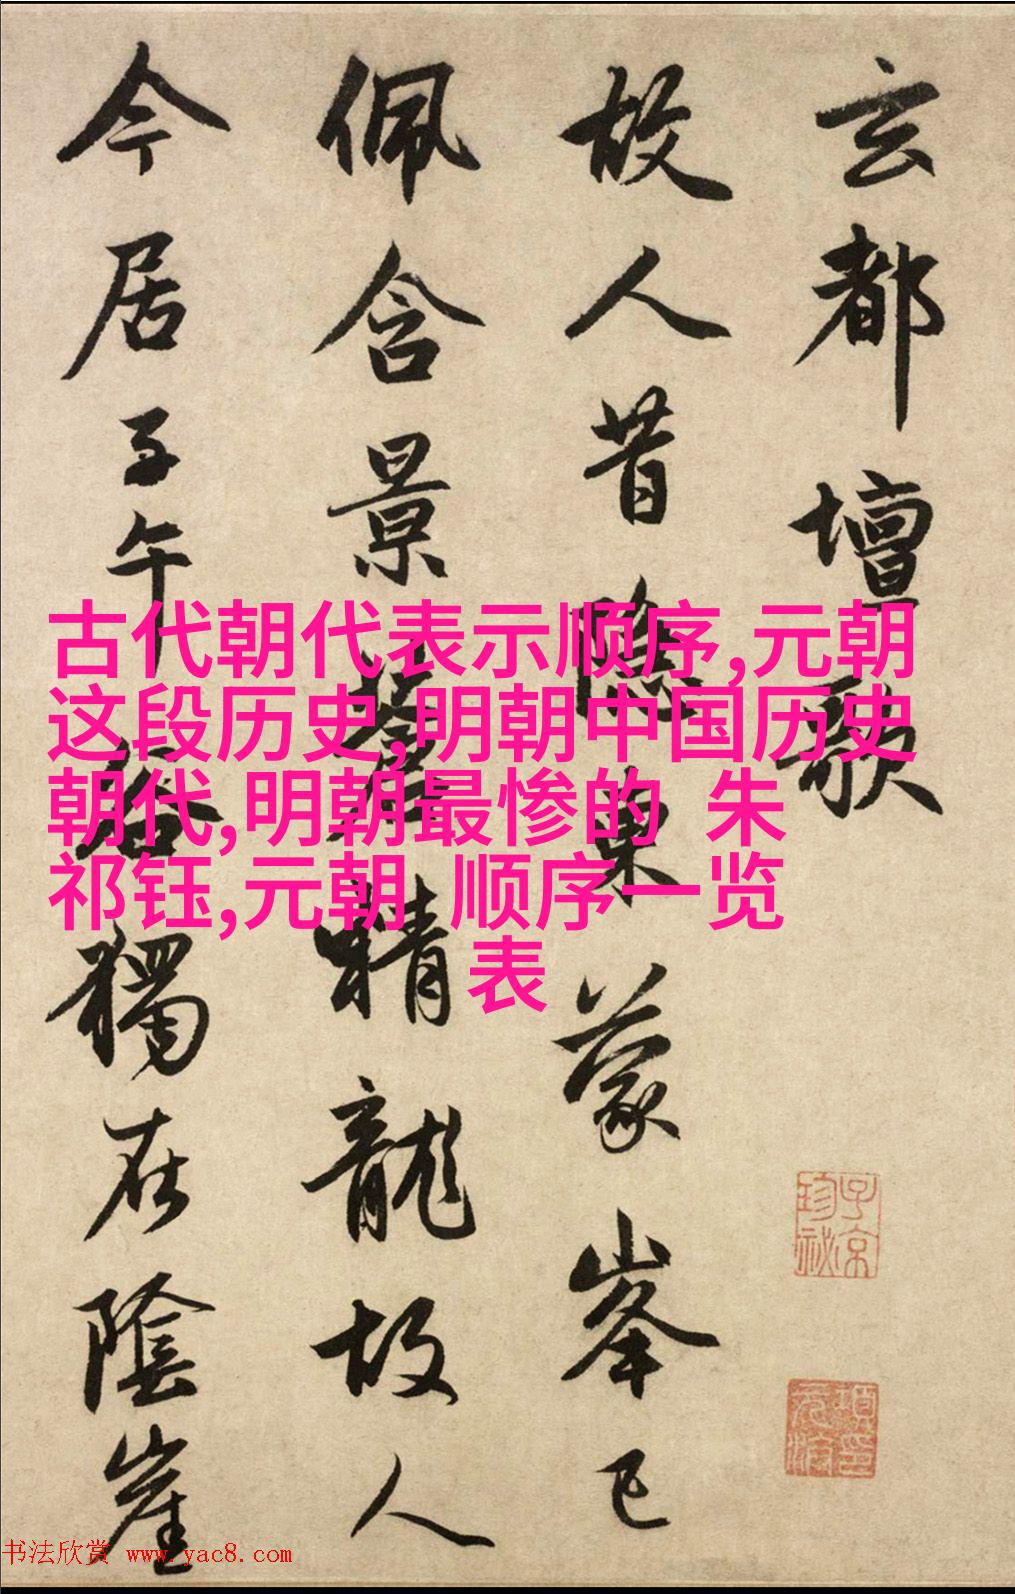 玄都壇歌
故人昔隱東蒙峯已
佩含景蒼精龍故人
今居子午谷獨在陰崖
古代朝代表示顺序,元朝
这段历史,明朝中国历史
朝代,明朝最惨的 朱
祁钰,元朝 顺序一览
表
子京
珍祕
书法欣赏 www.yac8.com